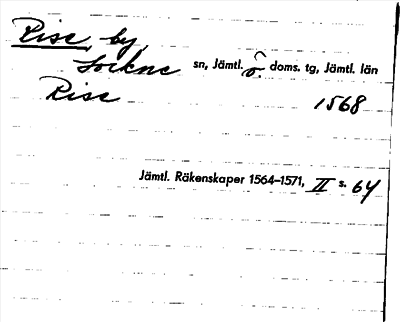 Rise, by,
Lockne sn, Jämtl. ö doms. tg, Jämtl. län
Rise 1568
Jämtl. Räkenskaper 1564–1571, II s. 64